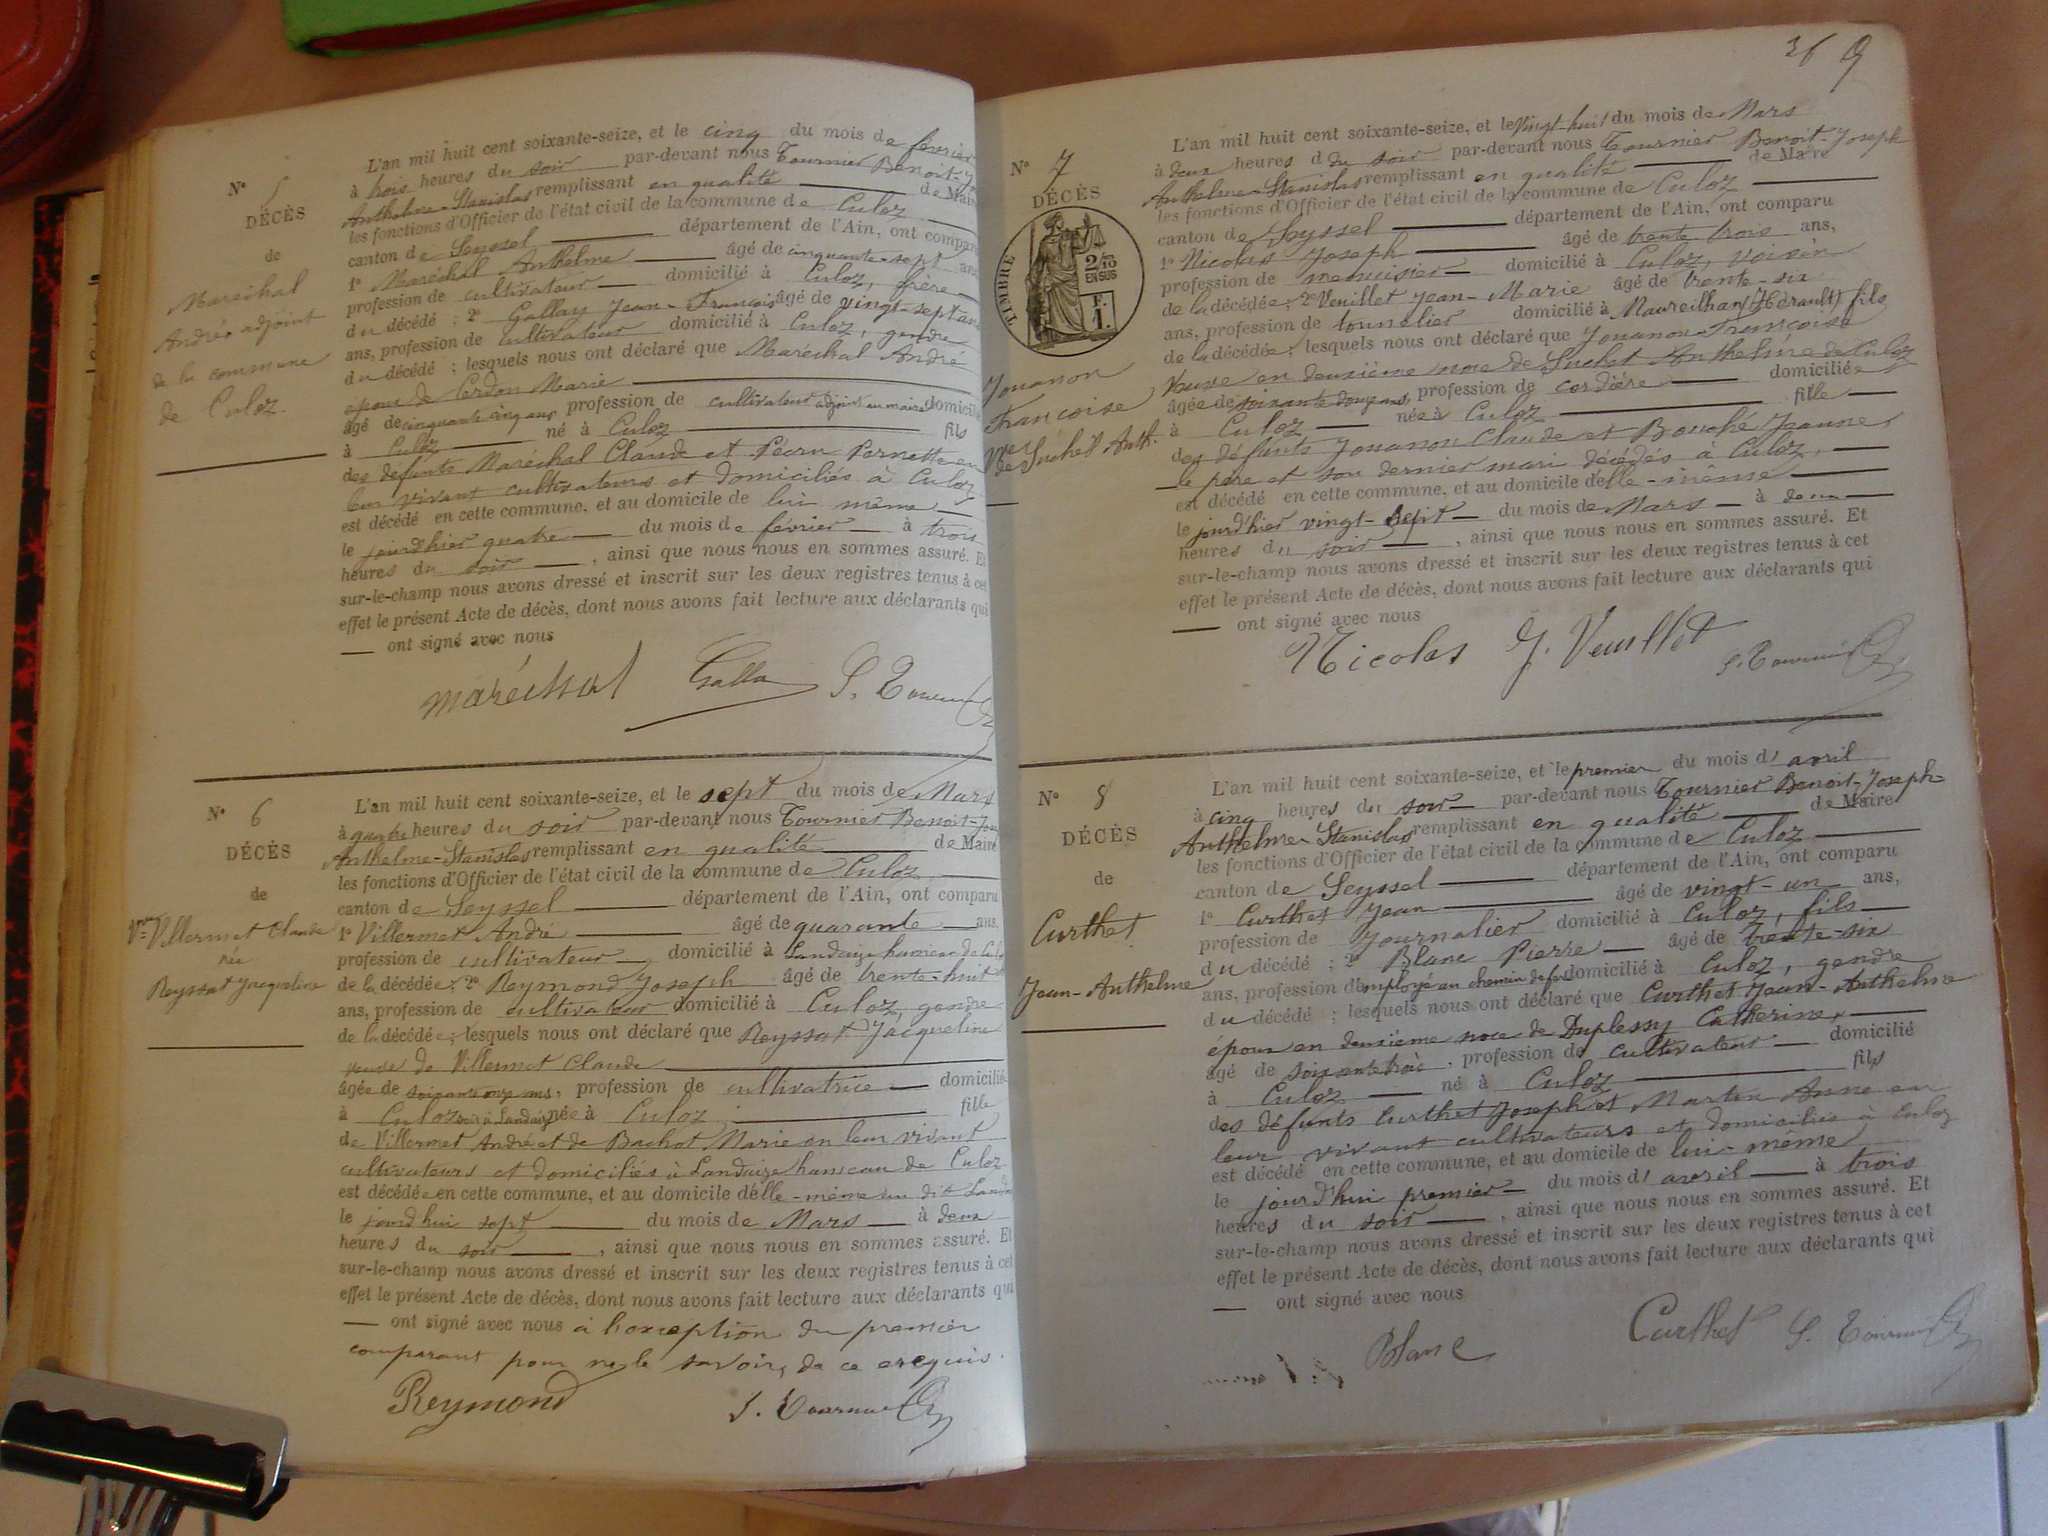 N° 5
DÉCÈS
de
Maréchal
André adjoint
de la commune
de Culoz
L'an mil huit cent soixante-seize, et le cinq du mois de février
à trois heures du soir par-devant nous Tournier Benoit-J
Anthelme-Stanislas remplissant en qualité de Maire
les fonctions d'Officier de l'état civil de la commune de Culoz
canton de Seyssel département de l'Ain, ont comparu
1° Maréchal Anthelme âgé de cinquante-sept ans
profession de cultivateur domicilié à Culoz, frère
du décédé ; 2° Gallay Jean-François âgé de vingt-sept ans
ans, profession de cultivateur domicilié à Culoz, gendre
du décédé ; lesquels nous ont déclaré que Maréchal André
époux de Cerdon Marie
âgé de cinquante cinq ans profession de cultivateur adjoint au maire domicilié
à Culoz né à Culoz fils
des défunts Maréchal Claude et Pernette en
leur vivant cultivateurs et domiciliés à Culoz
est décédé en cette commune, et au domicile de lui même
le jourd'hier quatre du mois de février à trois
heures du soir , ainsi que nous nous en sommes assuré. Et
sur-le-champ nous avons dressé et inscrit sur les deux registres tenus à cet
effet le présent Acte de décès, dont nous avons fait lecture aux déclarants qui
— ont signé avec nous
maréchal Galla S. Tournier
N° 6
DÉCÈS
de
Vve Villermet Claude
née
Reyssat Jacqueline
L'an mil huit cent soixante-seize, et le sept du mois de Mars
à quatre heures du soir par-devant nous Tournier Benoit-Jos
Anthelme-Stanislas remplissant en qualité de Maire
les fonctions d'Officier de l'état civil de la commune de Culoz
canton de Seyssel département de l'Ain, ont comparu
1° Villermet André âgé de quarante ans,
profession de cultivateur domicilié à Landaize hameau de Culoz
de la décédée ; 2° Reymond Joseph âgé de trente-huit
ans, profession de cultivateur domicilié à Culoz, gendre
de la décédée ; lesquels nous ont déclaré que Reyssat Jacqueline
veuve de Villermet Claude
âgée de soixante onze ans, profession de cultivatrice domiciliée
à Culoz soit à Landaize née à Culoz fille
de Villermet André et de Bachot Marie en leur vivant
cultivateurs et domiciliés à Landaize hameau de Culoz
est décédée en cette commune, et au domicile d'elle-même au dit Landaize
le jourd'hui sept du mois de Mars à deux
heures du soir , ainsi que nous nous en sommes assuré. Et
sur-le-champ nous avons dressé et inscrit sur les deux registres tenus à cet
effet le présent Acte de décès, dont nous avons fait lecture aux déclarants qui
— ont signé avec nous à l'exception du premier
comparant pour ne le savoir, de ce enquis.
Reymond S. Tournier
36 9
N° 7
DÉCÈS
TIMBRE
2/10 EN SUS
F. 1.
Jouanon
Françoise
Vve de Suchet Anth.
L'an mil huit cent soixante-seize, et le vingt-huit du mois de Mars
à deux heures d du soir par-devant nous Tournier Benoit-Joseph
Anthelme-Stanislas remplissant en qualité de Maire
les fonctions d'Officier de l'état civil de la commune de Culoz
canton de Seyssel département de l'Ain, ont comparu
1° Nicolas Joseph âgé de trente trois ans,
profession de menuisier domicilié à Culoz, voisin
de la décédée ; 2° Veuillet Jean-Marie âgé de trente-six
ans, profession de tonnelier domicilié à Maureilhan (Hérault) fils
de la décédée ; lesquels nous ont déclaré que Jouanon Françoise
Veuve en deuxième noce de Suchet Anthelme de Culoz
âgée de soixante douze ans profession de cordière domiciliée
à Culoz née à Culoz fille
des défunts Jouanon Claude et Bouché Jeanne
le père et son dernier mari décédés à Culoz,
est décédé en cette commune, et au domicile d'elle-même
le jourd'hier vingt-sept du mois de Mars à deux
heures du soir , ainsi que nous nous en sommes assuré. Et
sur-le-champ nous avons dressé et inscrit sur les deux registres tenus à cet
effet le présent Acte de décès, dont nous avons fait lecture aux déclarants qui
— ont signé avec nous
Nicolas J. Veuillet S. Tournier
N° 8
DÉCÈS
de
Curthet
Jean-Anthelme
L'an mil huit cent soixante-seize, et le premier du mois d'avril
à cinq heures du soir par-devant nous Tournier Benoit-Joseph-
Anthelme-Stanislas remplissant en qualité de Maire
les fonctions d'Officier de l'état civil de la commune de Culoz
canton de Seyssel département de l'Ain, ont comparu
1° Curthet Jean âgé de vingt-un ans,
profession de Journalier domicilié à Culoz, fils
du décédé ; 2° Blanc Pierre âgé de trente-six
ans, profession d'employé au chemin de fer domicilié à Culoz, gendre
du décédé ; lesquels nous ont déclaré que Curthet Jean-Anthelme
époux en deuxième noce de Duplessy Catherine,
âgé de soixante trois , profession de cultivateur domicilié
à Culoz né à Culoz fils
des défunts Curthet Joseph et Martin Anne en
leur vivant cultivateurs et domiciliés à Culoz
est décédé en cette commune, et au domicile de lui-même
le jourd'hui premier du mois d'avril à trois
heures du soir , ainsi que nous nous en sommes assuré. Et
sur-le-champ nous avons dressé et inscrit sur les deux registres tenus à cet
effet le présent Acte de décès, dont nous avons fait lecture aux déclarants qui
— ont signé avec nous
Blanc Curthet S. Tournier